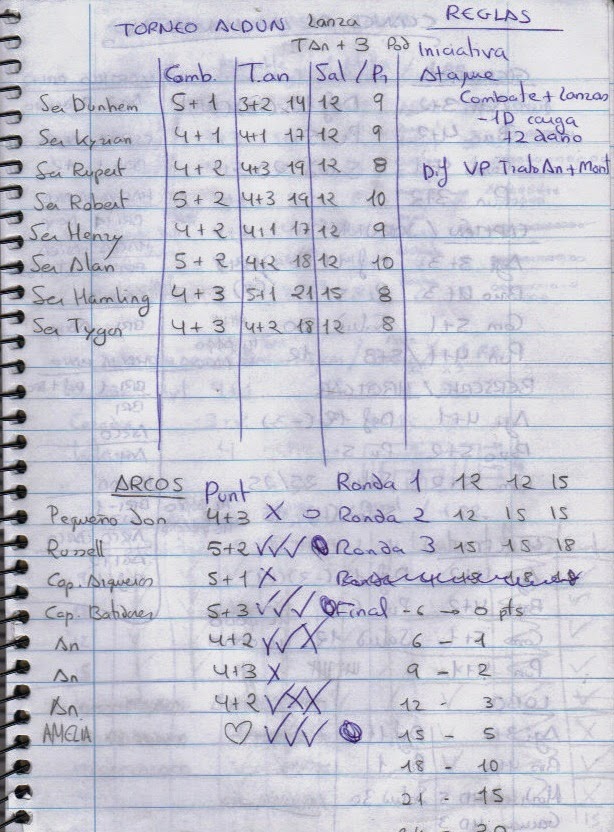 TORNEO ALDUN Lanza REGLAS
TAn + 3 Pod Iniciativa
Comb. T.an Sal / Pr Ataque
Ser Dunhem 5+1 3+2 14 12 9 Combate + Lanzas
Ser Kyrian 4+1 4+1 17 12 9 -1D carga +2 daño
Ser Rupert 4+2 4+3 19 12 8 Dif VP Trat An + Mont
Ser Robert 5+2 4+3 19 12 10
Ser Henry 4+2 4+1 17 12 9
Ser Alan 5+2 4+2 18 12 10
Ser Hamling 4+3 5+1 21 15 8
Ser Tygor 4+3 4+2 18 12 8
ARCOS Punt Ronda 1 12 12 15
Pequeño Jon 4+3 X O Ronda 2 12 15 15
Russell 5+2 ✓✓✓ Ronda 3 15 15 18
Cap. Arqueros 5+1 X
Cap. Batidores 5+3 ✓✓✓ Final -6 → 0 pts
An 4+2 ✓✓X 6 - 1
An 4+3 X 9 - 2
An. 4+2 ✓XX 12 - 3
AMELIA ♡ ✓✓✓ 15 - 5
18 - 10
21 - 15